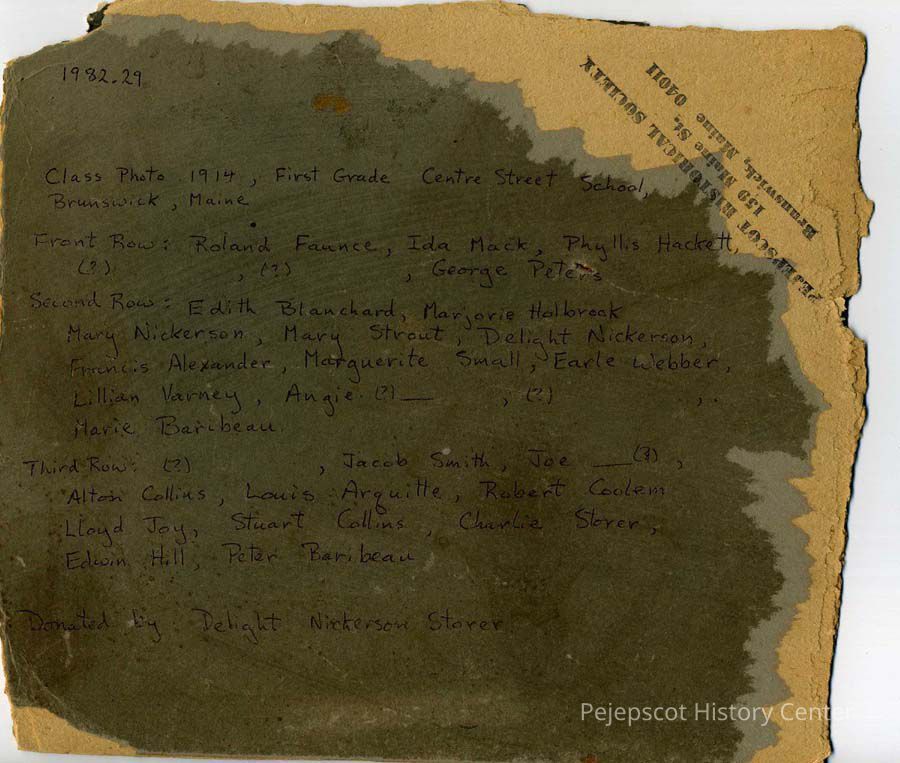 1982.29
PEJEPSCOT HISTORICAL SOCIETY
159 Maine St.
Brunswick, Maine 04011
Class Photo 1914, First Grade Centre Street School,
Brunswick, Maine
Front Row: Roland Faunce, Ida Mack, Phyllis Hackett,
(?) , (?) , George Peters
Second Row: Edith Blanchard, Marjorie Holbrook
Mary Nickerson, Mary Strout, Delight Nickerson,
Francis Alexander, Marguerite Small, Earle Webber,
Lillian Varney, Angie (?) __ , (?) , .
Marie Baribeau.
Third Row: (?) , Jacob Smith, Joe __(?) ,
Alton Collins, Louis Arquitte, Robert Coolem
Lloyd Joy, Stuart Collins, Charlie Storer,
Edwin Hill, Peter Baribeau
Donated by Delight Nickerson Storer
Pejepscot History Center